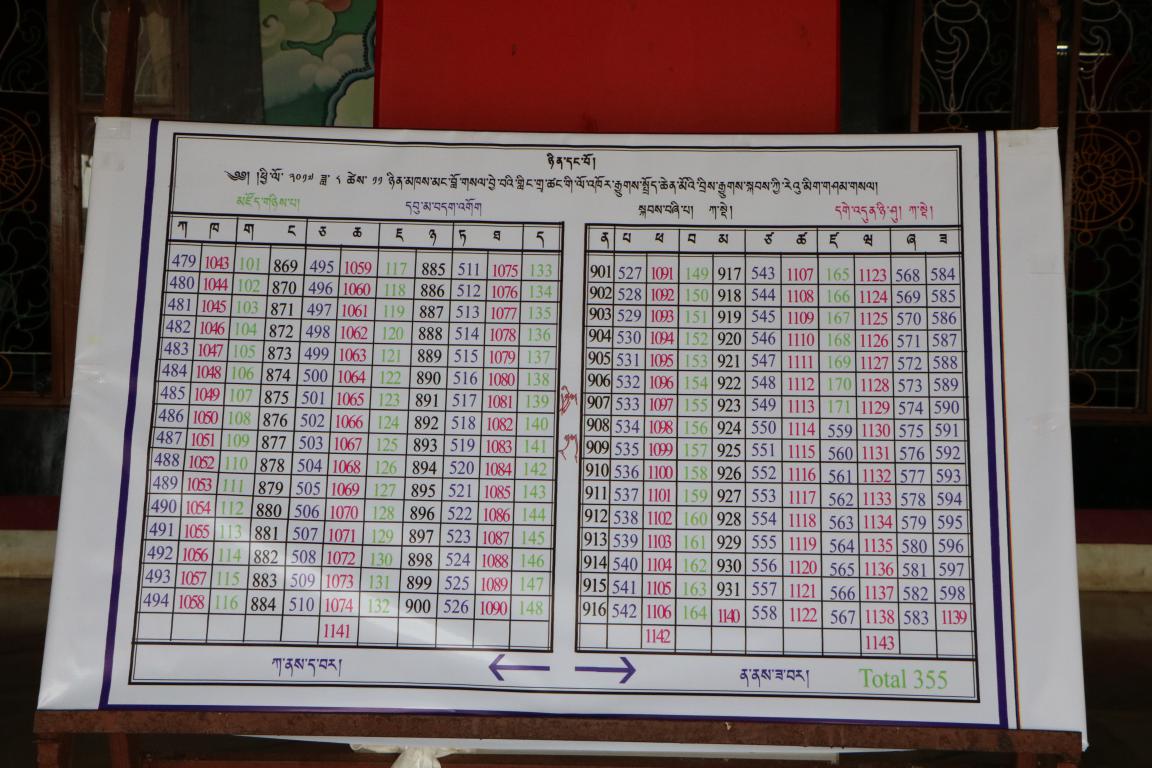 ཉིན་དང་པོ།
༄༅། །ཕྱི་ལོ་ ༢༠༡༧ ཟླ་ ༨ ཚེས་ ༡༡ ཉིན་མཁས་མང་བློ་གསལ་བྱེ་བའི་གླིང་གྲྭ་ཚང་གི་ལོ་འཁོར་རྒྱུགས་སྤྲོད་ཆེན་མོའི་བྲིས་རྒྱུགས་སྐབས་ཀྱི་རེའུ་མིག་གཤམ་གསལ།
མཛོད་གཉིས་པ། དབུ་མ་བདག་འགོག སྐབས་བཞི་པ། ཀ་སྡེ། དགེ་འདུན་ཉི་ཤུ། ཀ་སྡེ།
ཀ ཁ ག ང ཅ ཆ ཇ ཉ ཏ ཐ ད ན པ ཕ བ མ ཙ ཚ ཛ ཝ ཞ ཟ
479 1043 101 869 495 1059 117 885 511 1075 133 901 527 1091 149 917 543 1107 165 1123 568 584
480 1044 102 870 496 1060 118 886 512 1076 134 902 528 1092 150 918 544 1108 166 1124 569 585
481 1045 103 871 497 1061 119 887 513 1077 135 903 529 1093 151 919 545 1109 167 1125 570 586
482 1046 104 872 498 1062 120 888 514 1078 136 904 530 1094 152 920 546 1110 168 1126 571 587
483 1047 105 873 499 1063 121 889 515 1079 137 905 531 1095 153 921 547 1111 169 1127 572 588
484 1048 106 874 500 1064 122 890 516 1080 138 906 532 1096 154 922 548 1112 170 1128 573 589
485 1049 107 875 501 1065 123 891 517 1081 139 907 533 1097 155 923 549 1113 171 1129 574 590
486 1050 108 876 502 1066 124 892 518 1082 140 908 534 1098 156 924 550 1114 559 1130 575 591
487 1051 109 877 503 1067 125 893 519 1083 141 909 535 1099 157 925 551 1115 560 1131 576 592
488 1052 110 878 504 1068 126 894 520 1084 142 910 536 1100 158 926 552 1116 561 1132 577 593
489 1053 111 879 505 1069 127 895 521 1085 143 911 537 1101 159 927 553 1117 562 1133 578 594
490 1054 112 880 506 1070 128 896 522 1086 144 912 538 1102 160 928 554 1118 563 1134 579 595
491 1055 113 881 507 1071 129 897 523 1087 145 913 539 1103 161 929 555 1119 564 1135 580 596
492 1056 114 882 508 1072 130 898 524 1088 146 914 540 1104 162 930 556 1120 565 1136 581 597
493 1057 115 883 509 1073 131 899 525 1089 147 915 541 1105 163 931 557 1121 566 1137 582 598
494 1058 116 884 510 1074 132 900 526 1090 148 916 542 1106 164 1140 558 1122 567 1138 583 1139
1141 1142 1143
ཀ་ནས་ད་བར། ན་ནས་ཟ་བར། Total 355